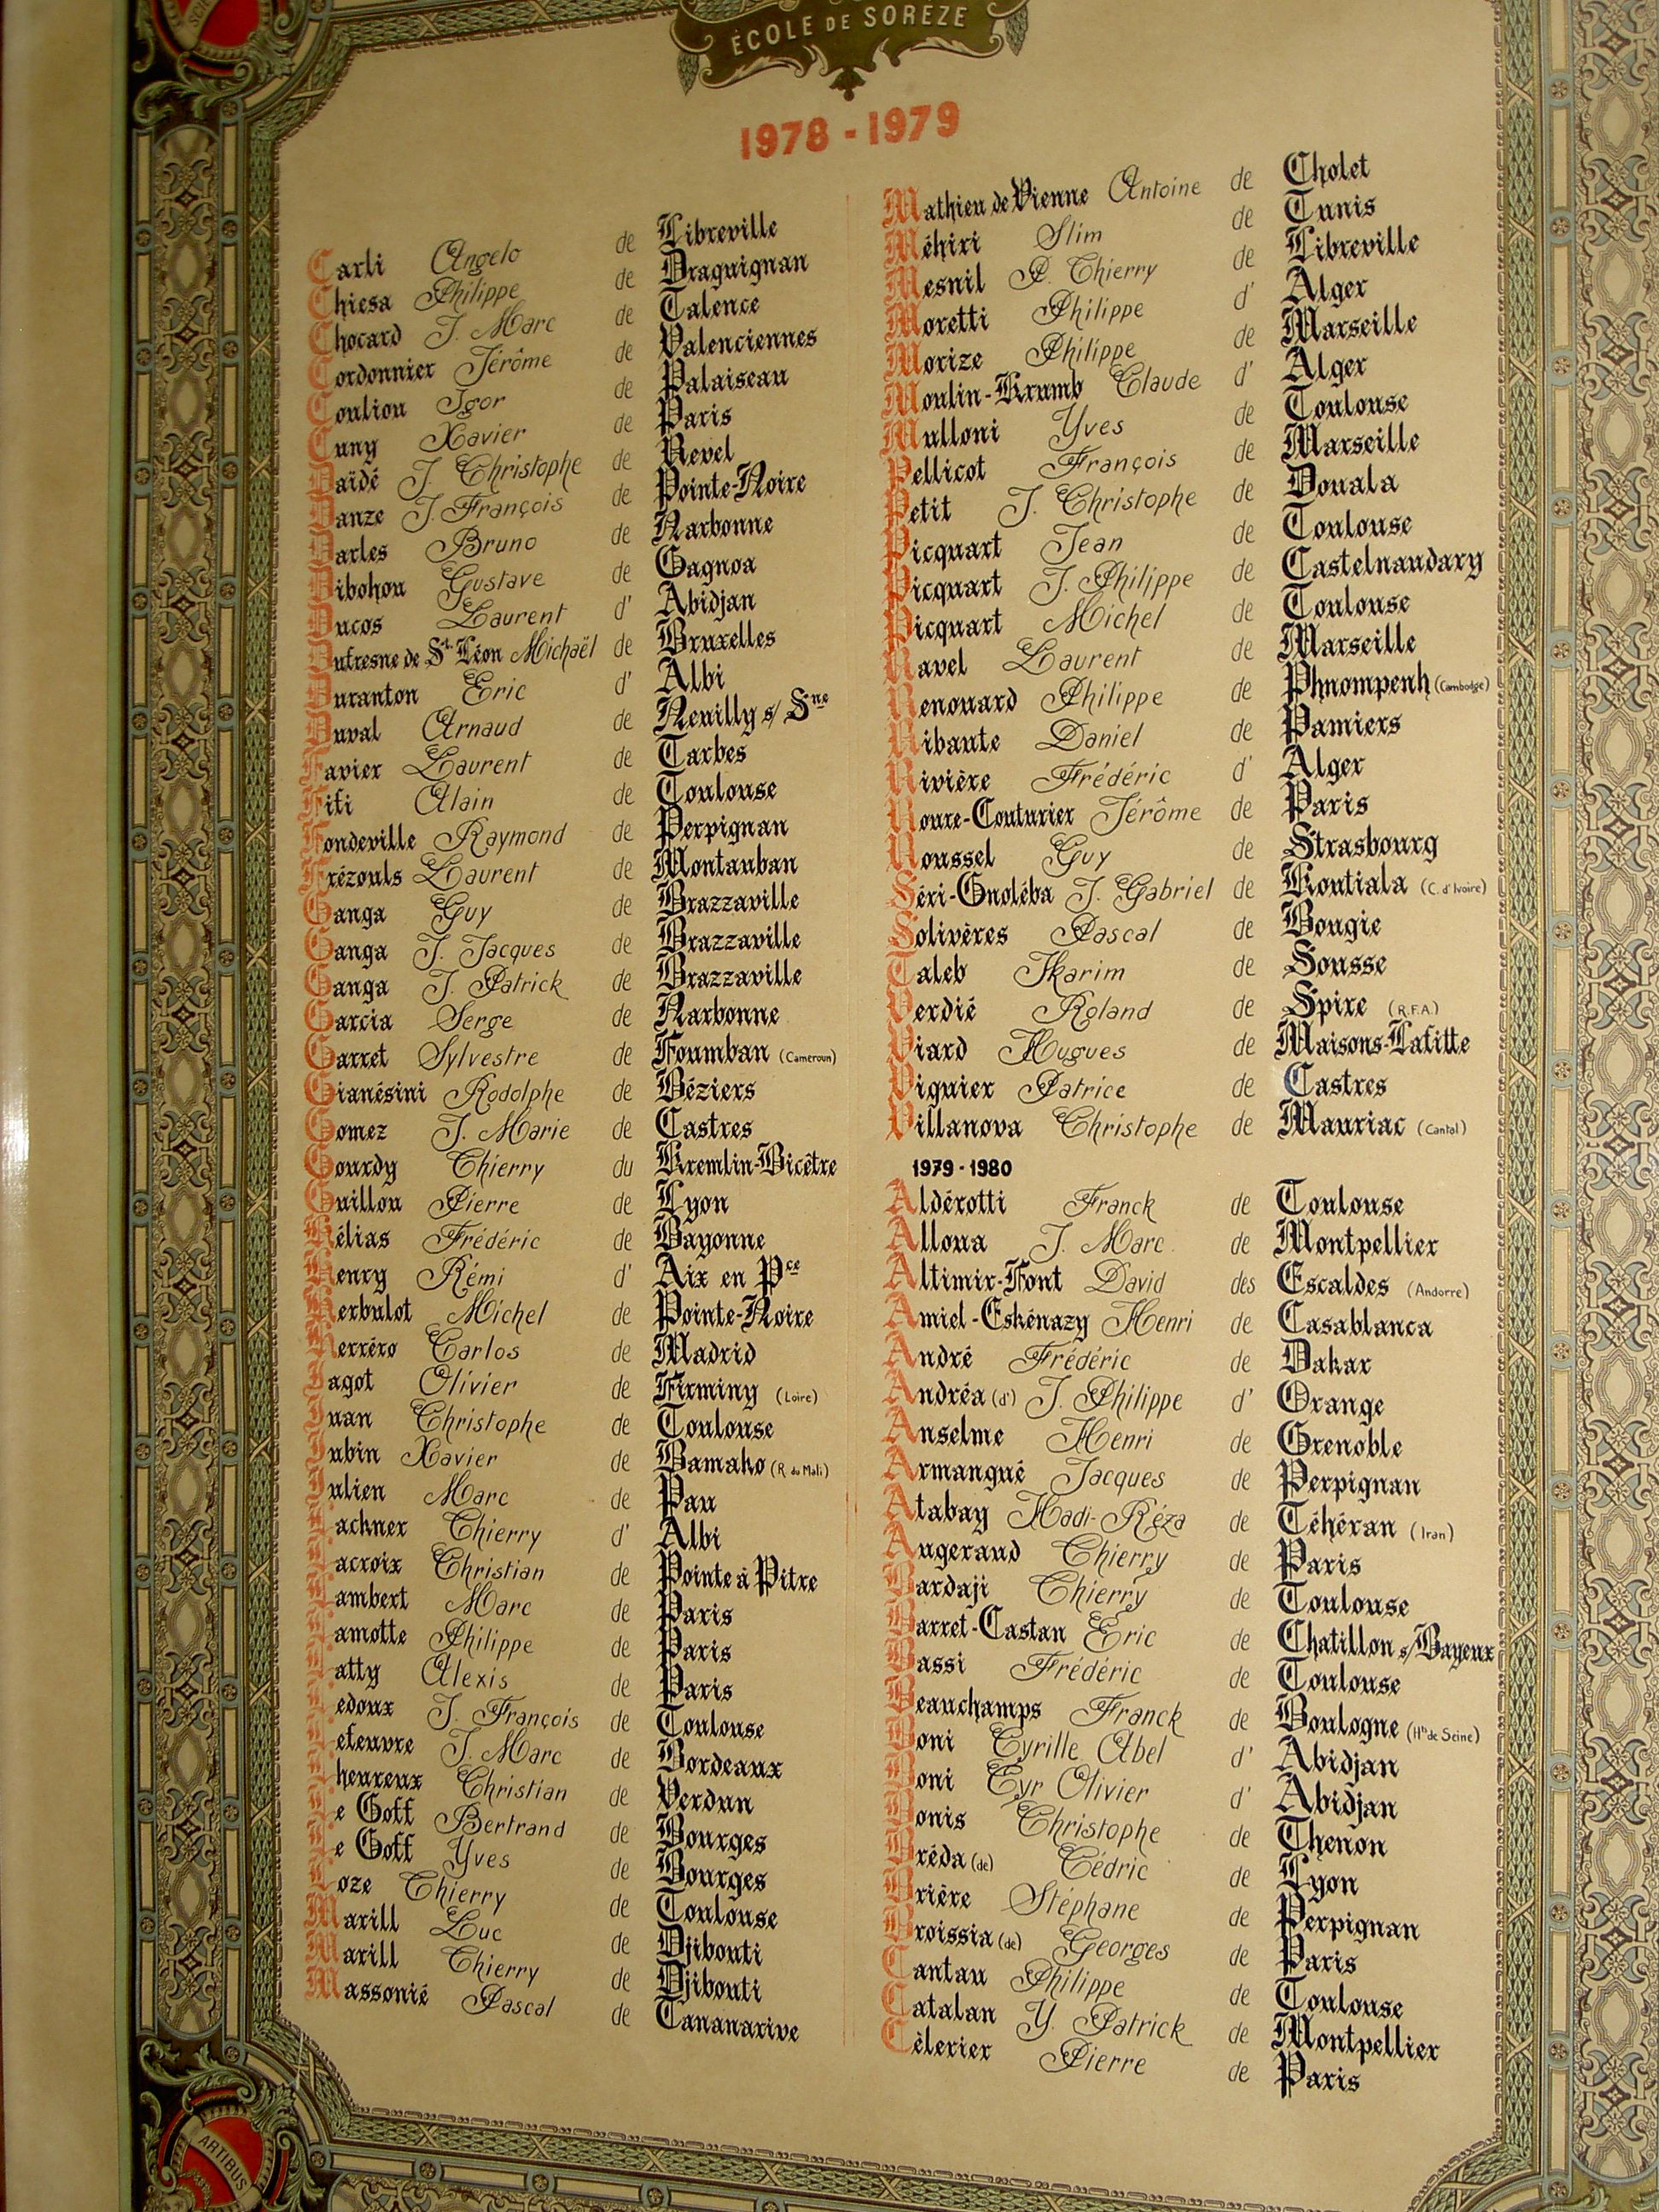 ÉCOLE DE SORÈZE
1978 - 1979
Carli Angelo de Libreville
Chiesa Philippe de Draguignan
Chocard J. Marc de Talence
Cordonnier Jérôme de Valenciennes
Couliou Igor de Palaiseau
Cuny Xavier de Paris
Daïdé J. Christophe de Revel
Danze J. François de Pointe-Noire
Darles Bruno de Narbonne
Dibohou Gustave de Gagnoa
Ducos Laurent d' Abidjan
Dufresne de St. Léon Michaël de Bruxelles
Duranton Eric d' Albi
Duval Arnaud de Neuilly s/ Sne
Favier Laurent de Tarbes
Fiti Alain de Toulouse
Fondeville Raymond de Perpignan
Frézouls Laurent de Montauban
Ganga Guy de Brazzaville
Ganga J. Jacques de Brazzaville
Ganga J. Patrick de Brazzaville
Garcia Serge de Narbonne
Garret Sylvestre de Foumban (Cameroun)
Gianésini Rodolphe de Béziers
Gomez J. Marie de Castres
Gourdy Thierry du Kremlin-Bicêtre
Guillou Pierre de Lyon
Hélias Frédéric de Bayonne
Henry Rémi d' Aix en Pce
Herbulot Michel de Pointe-Noire
Herréro Carlos de Madrid
Jagot Olivier de Firminy (Loire)
Juan Christophe de Toulouse
Jubin Xavier de Bamako (R. du Mali)
Julien Marc de Pau
Lachner Thierry d' Albi
Lacroix Christian de Pointe à Pitre
Lambert Marc de Paris
Lamotte Philippe de Paris
Latty Alexis de Paris
Ledoux J. François de Toulouse
Lefeuvre J. Marc de Bordeaux
Lheureux Christian de Verdun
Le Goff Bertrand de Bourges
Le Goff Yves de Bourges
Loze Thierry de Toulouse
Marill Luc de Djibouti
Marill Thierry de Djibouti
Massonié Pascal de Tananarive
Mathieu de Vienne Antoine de Cholet
Méhiri Slim de Tunis
Mesnil P. Thierry de Libreville
Moretti Philippe d' Alger
Morize Philippe de Marseille
Moulin-Krumb Claude d' Alger
Mulloni Yves de Toulouse
Pellicot François de Marseille
Petit J. Christophe de Douala
Picquart Jean de Toulouse
Picquart J. Philippe de Castelnaudary
Picquart Michel de Toulouse
Ravel Laurent de Marseille
Renouard Philippe de Phnompenh (Cambodge)
Ribaute Daniel de Pamiers
Rivière Frédéric d' Alger
Roure-Couturier Jérôme de Paris
Roussel Guy de Strasbourg
Séri-Gnoléba J. Gabriel de Koutiala (C. d'Ivoire)
Solivères Pascal de Bougie
Taleb Skarim de Sousse
Verdié Roland de Spire (R.F.A.)
Viard Hugues de Maisons-Lafitte
Viguier Patrice de Castres
Villanova Christophe de Mauriac (Cantal)
1979 - 1980
Aldérotti Franck de Toulouse
Alloua J. Marc de Montpellier
Altimir-Font David des Escaldes (Andorre)
Amiel-Eskénazy Henri de Casablanca
André Frédéric de Dakar
Andréa (d') J. Philippe d' Orange
Anselme Henri de Grenoble
Armangué Jacques de Perpignan
Atabay Hadi-Réza de Téhéran (Iran)
Augeraud Thierry de Paris
Bardaji Thierry de Toulouse
Barret-Castan Eric de Chatillon s/Bayeux
Bassi Frédéric de Toulouse
Beauchamps Franck de Boulogne (Hts de Seine)
Boni Cyrille Abel d' Abidjan
Boni Cyr Olivier d' Abidjan
Bonis Christophe de Thenon
Bréda (de) Cédric de Lyon
Brière Stéphane de Perpignan
Broissia (de) Georges de Paris
Cantau Philippe de Toulouse
Catalan Y. Patrick de Montpellier
Célerier Pierre de Paris
ARTIBUS